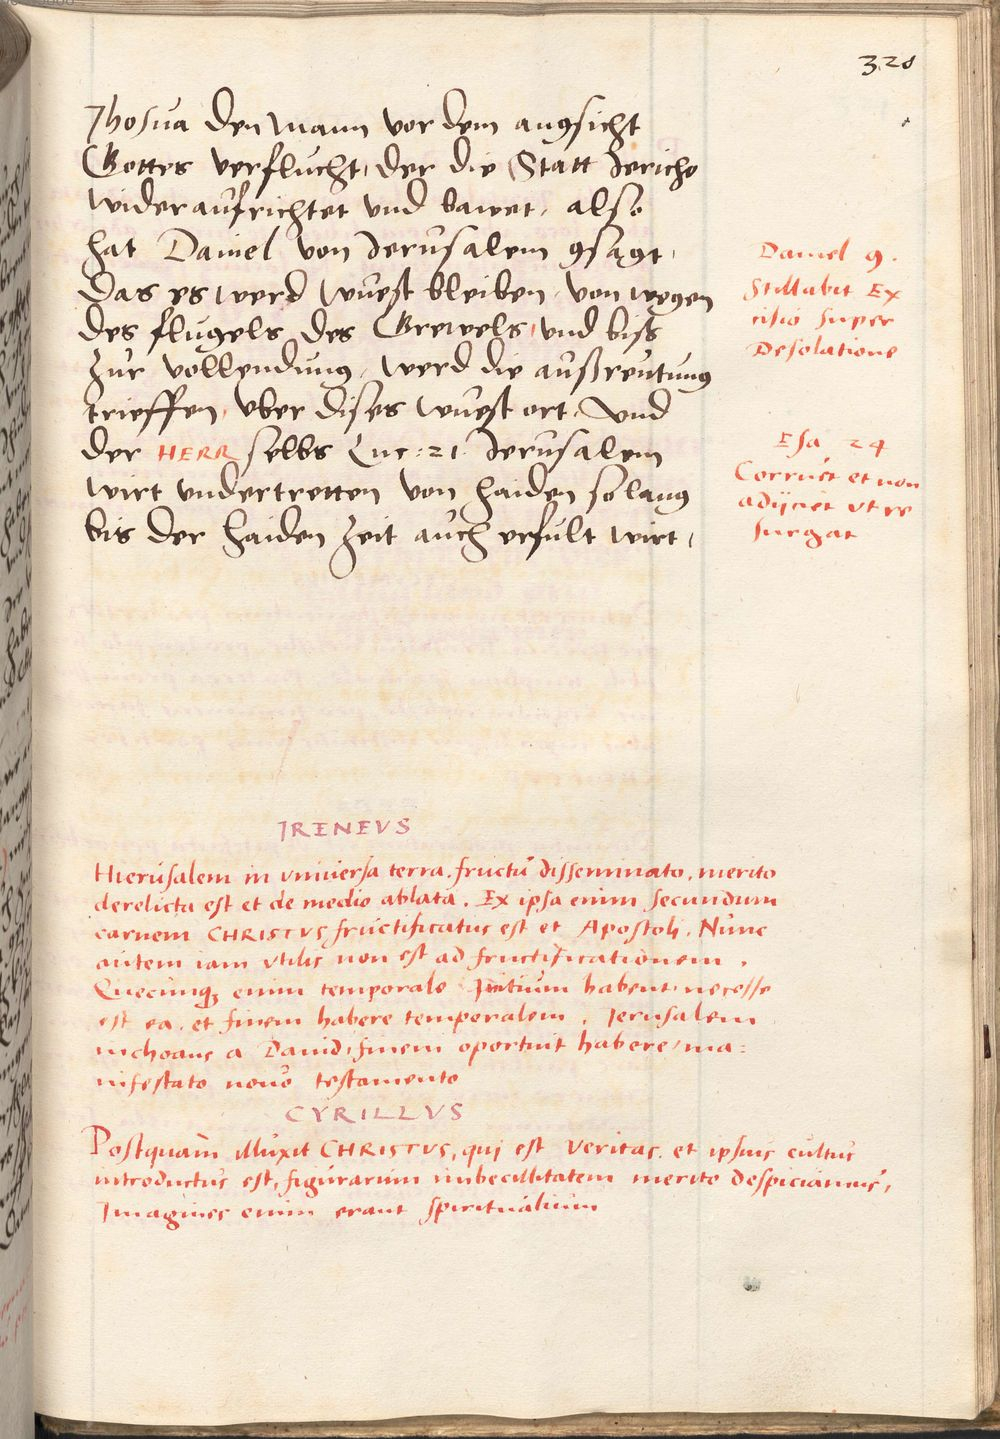 320
Jhosua den Mann vor dem angsicht
Gottes verflucht, der die Statt Jericho
wider aufrichtet vnd bawet, also
hat Daniel von Jerusalem gsagt,
Das es werd wuest bleiben, von wegen
des flugels des Grewels, vnd biss
zur vollendung, werd die außreutung
trieffen, vber dises wuest ort, Vnd
der HERR selbs Luc: 21. Jerusalem
wirt vndertretten von haiden so lang
bis der haiden zeit auch erfult wirt,
Daniel 9.
Stillabit Ex
itio super
Desolatione
Esa 24
Corruet et non
adijciet vt re
surgat
IRENEVS
Hierusalem in vniuersa terra, fructū disseminato, merito
derelicta est et de medio ablata. Ex ipsa enim secundum
carnem CHRISTVS fructificatus est et Apostoli. Nunc
autem iam vtilis non est ad fructificationem.
Quecunq; enim temporale Initium habent, necesse
est ea, et finem habere temporalem, Jerusalem
inchoans a Dauid, finem oportuit habere, ma:
nifestato nouo testamento
CYRILLVS
Postquam illuxit CHRISTVS, qui est veritas, et ipsius cultus
introductus est, figurarum imbecillitatem merito despiciamus,
Imagines enim erant spiritualium